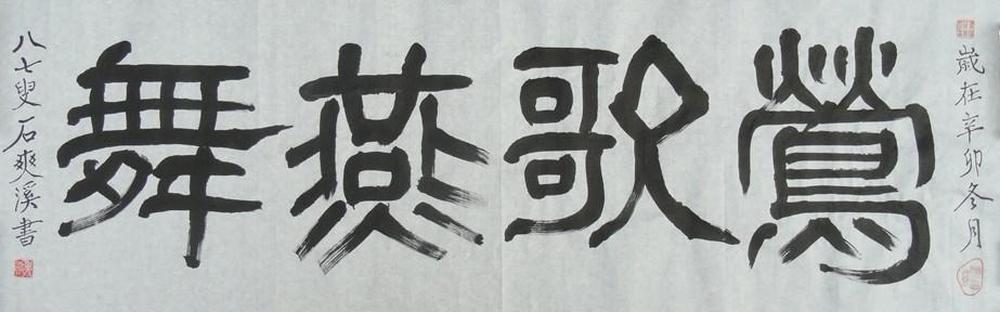 歲在辛卯冬月
鶯歌燕舞
八七叟石爽溪書